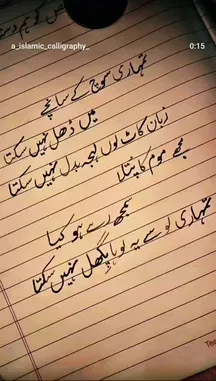 a_islamic_calligraphy_
0:15
تمہاری سوچ کے سانچے
میں ڈھل نہیں سکتا
زبان کاٹ لوں لہجہ بدل نہیں سکتا
مجھے موم کا پتلا
سمجھ رہے ہو کیا
تمہاری لو سے یہ لوہا پگھل نہیں سکتا